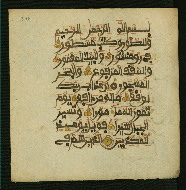 بسم الله الرحمن الرحيم
والطور وكتب مسطور
في رق منشور والبيت المعمور
والسقف المرفوع والبحر
المسجور إن عذاب ربك
لوقع ما له من دافع يوم
تمور السماء مورا وتسير
الجبال سيرا فويل يومئذ
للمكذبين الذين هم في